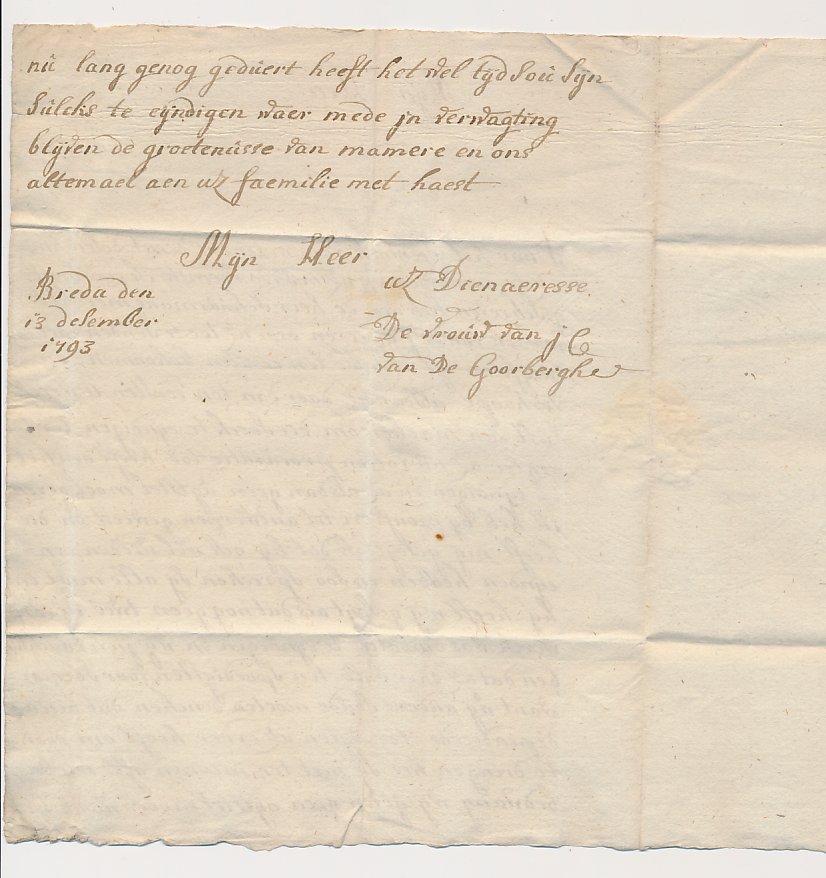 nú lang genog gedúert heeft het wel tyd soú syn
súlcks te eyndigen waer mede jn verwagting
blyven de groetenússe van mamere en ons
altemael aen uE faemilie met haest
Mijn Heer
uE Dienaeresse
Breda den
13 desember
1793
De vroúw van j C
van De Goorberghe